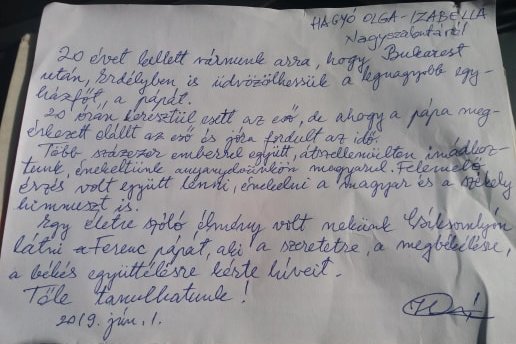 HAGYÓ OLGA-IZABELLA
Nagyszalontáról
20 évet kellett várnunk arra, hogy Bukarest
után, Erdélyben is üdvözölhessük a legnagyobb egy-
házfőt, a pápát.
20 órán keresztül esett az eső, de ahogy a pápa meg-
érkezett elállt az eső és jóra fordult az idő.
Több százezer emberrel együtt, átszellemülten imádkoz-
tunk, énekeltünk anyanyelvünkön magyarul. Felemelő
érzés volt együtt lenni, énekelni a magyar és a székely
himnuszt is.
Egy életre szóló élmény volt nekünk Csíksomlyón
látni Ferenc pápát, aki a szeretetre, a megbékélésre,
a békés együttélésre kérte híveit.
Tőle tanulhatunk!
2019. jún. 1.